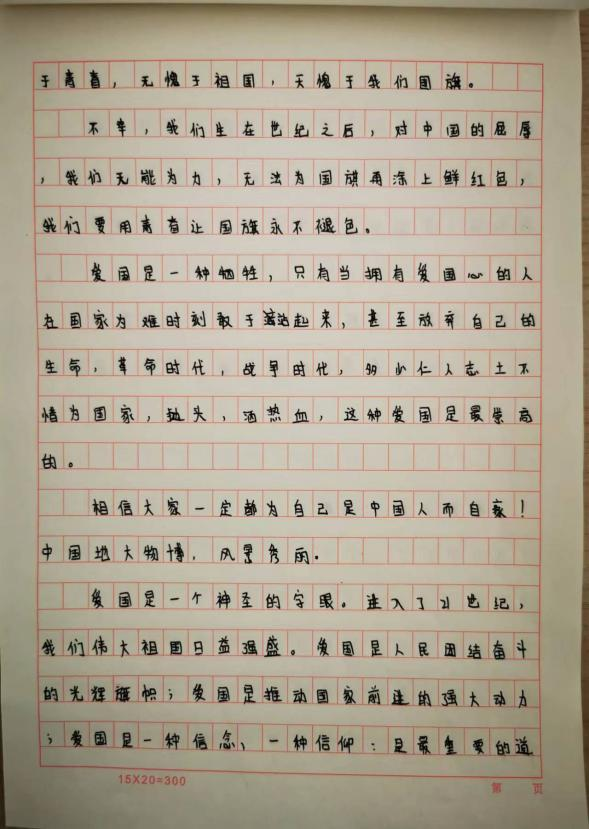 于青春，无愧于祖国，无愧于我们国旗。
不幸，我们生在世纪之后，对中国的屈辱
，我们无能为力，无法为国旗再添上鲜红色，
我们要用青春让国旗永不褪色。
爱国是一种牺牲，只有当拥有爱国心的人
在国家为难时刻敢于站起来，甚至放弃自己的
生命，革命时代，战争时代，多少仁人志士不
惜为国家，抛头，洒热血，这种爱国是最崇高
的。
相信大家一定都为自己是中国人而自豪！
中国地大物博，风景秀丽。
爱国是一个神圣的字眼。进入了21世纪，
我们伟大祖国日益强盛。爱国是人民团结奋斗
的光辉旗帜；爱国是推动国家前进的强大动力
；爱国是一种信念，一种信仰：是最重要的道
15X20=300
第 页